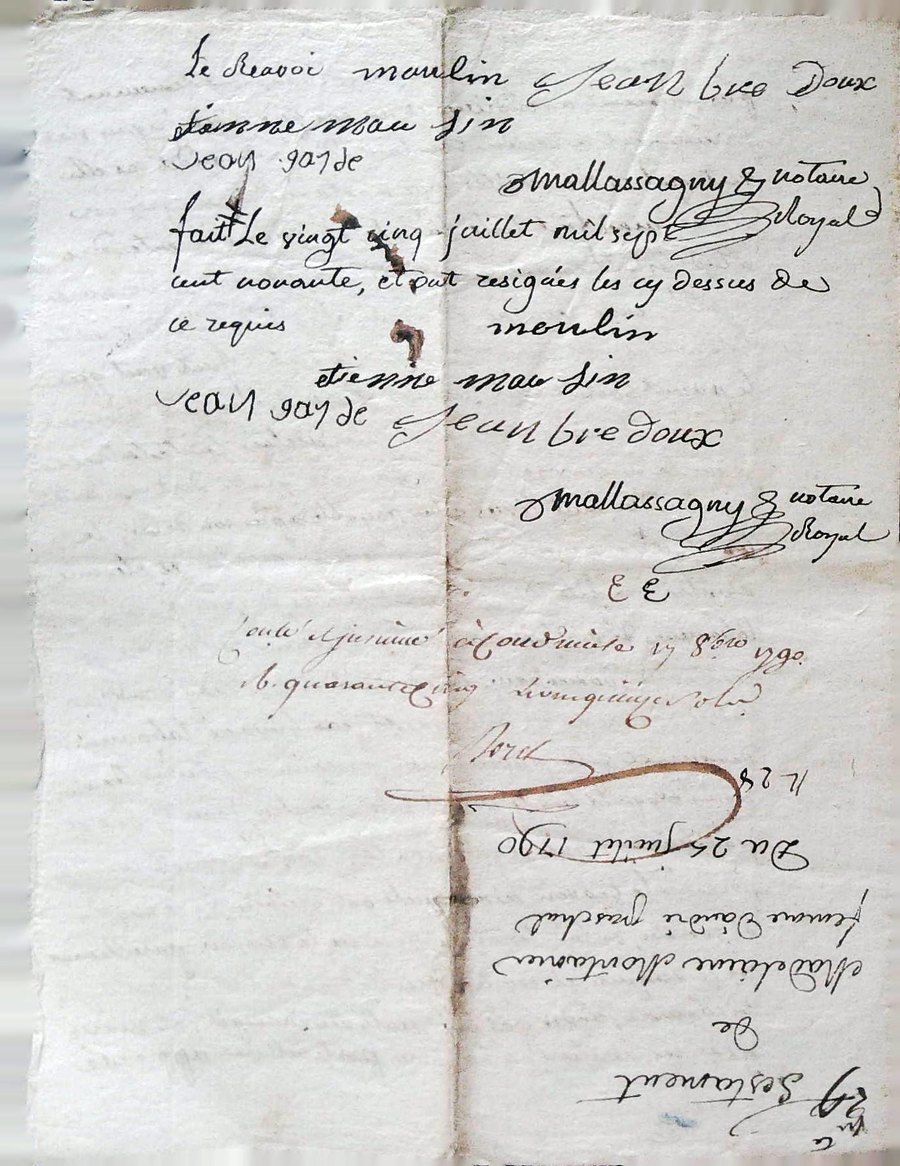 Le Reavoi moulin Jean bre Doux
étienne mau lin
Jean garde
Mallassagny notaire
Royal
fait Le vingt cinq juillet mil sept
cent nonante, et ont resignées les cy dessus de
ce requis moulin
etienne mau lin
Jean garde Jean bre doux
Mallassagny notaire
Royal
17 8bre 1790
quarante cinq
n 28
Du 25 juillet 1790
femme d'andré paschal
Madelaine Montanier
de
Testament